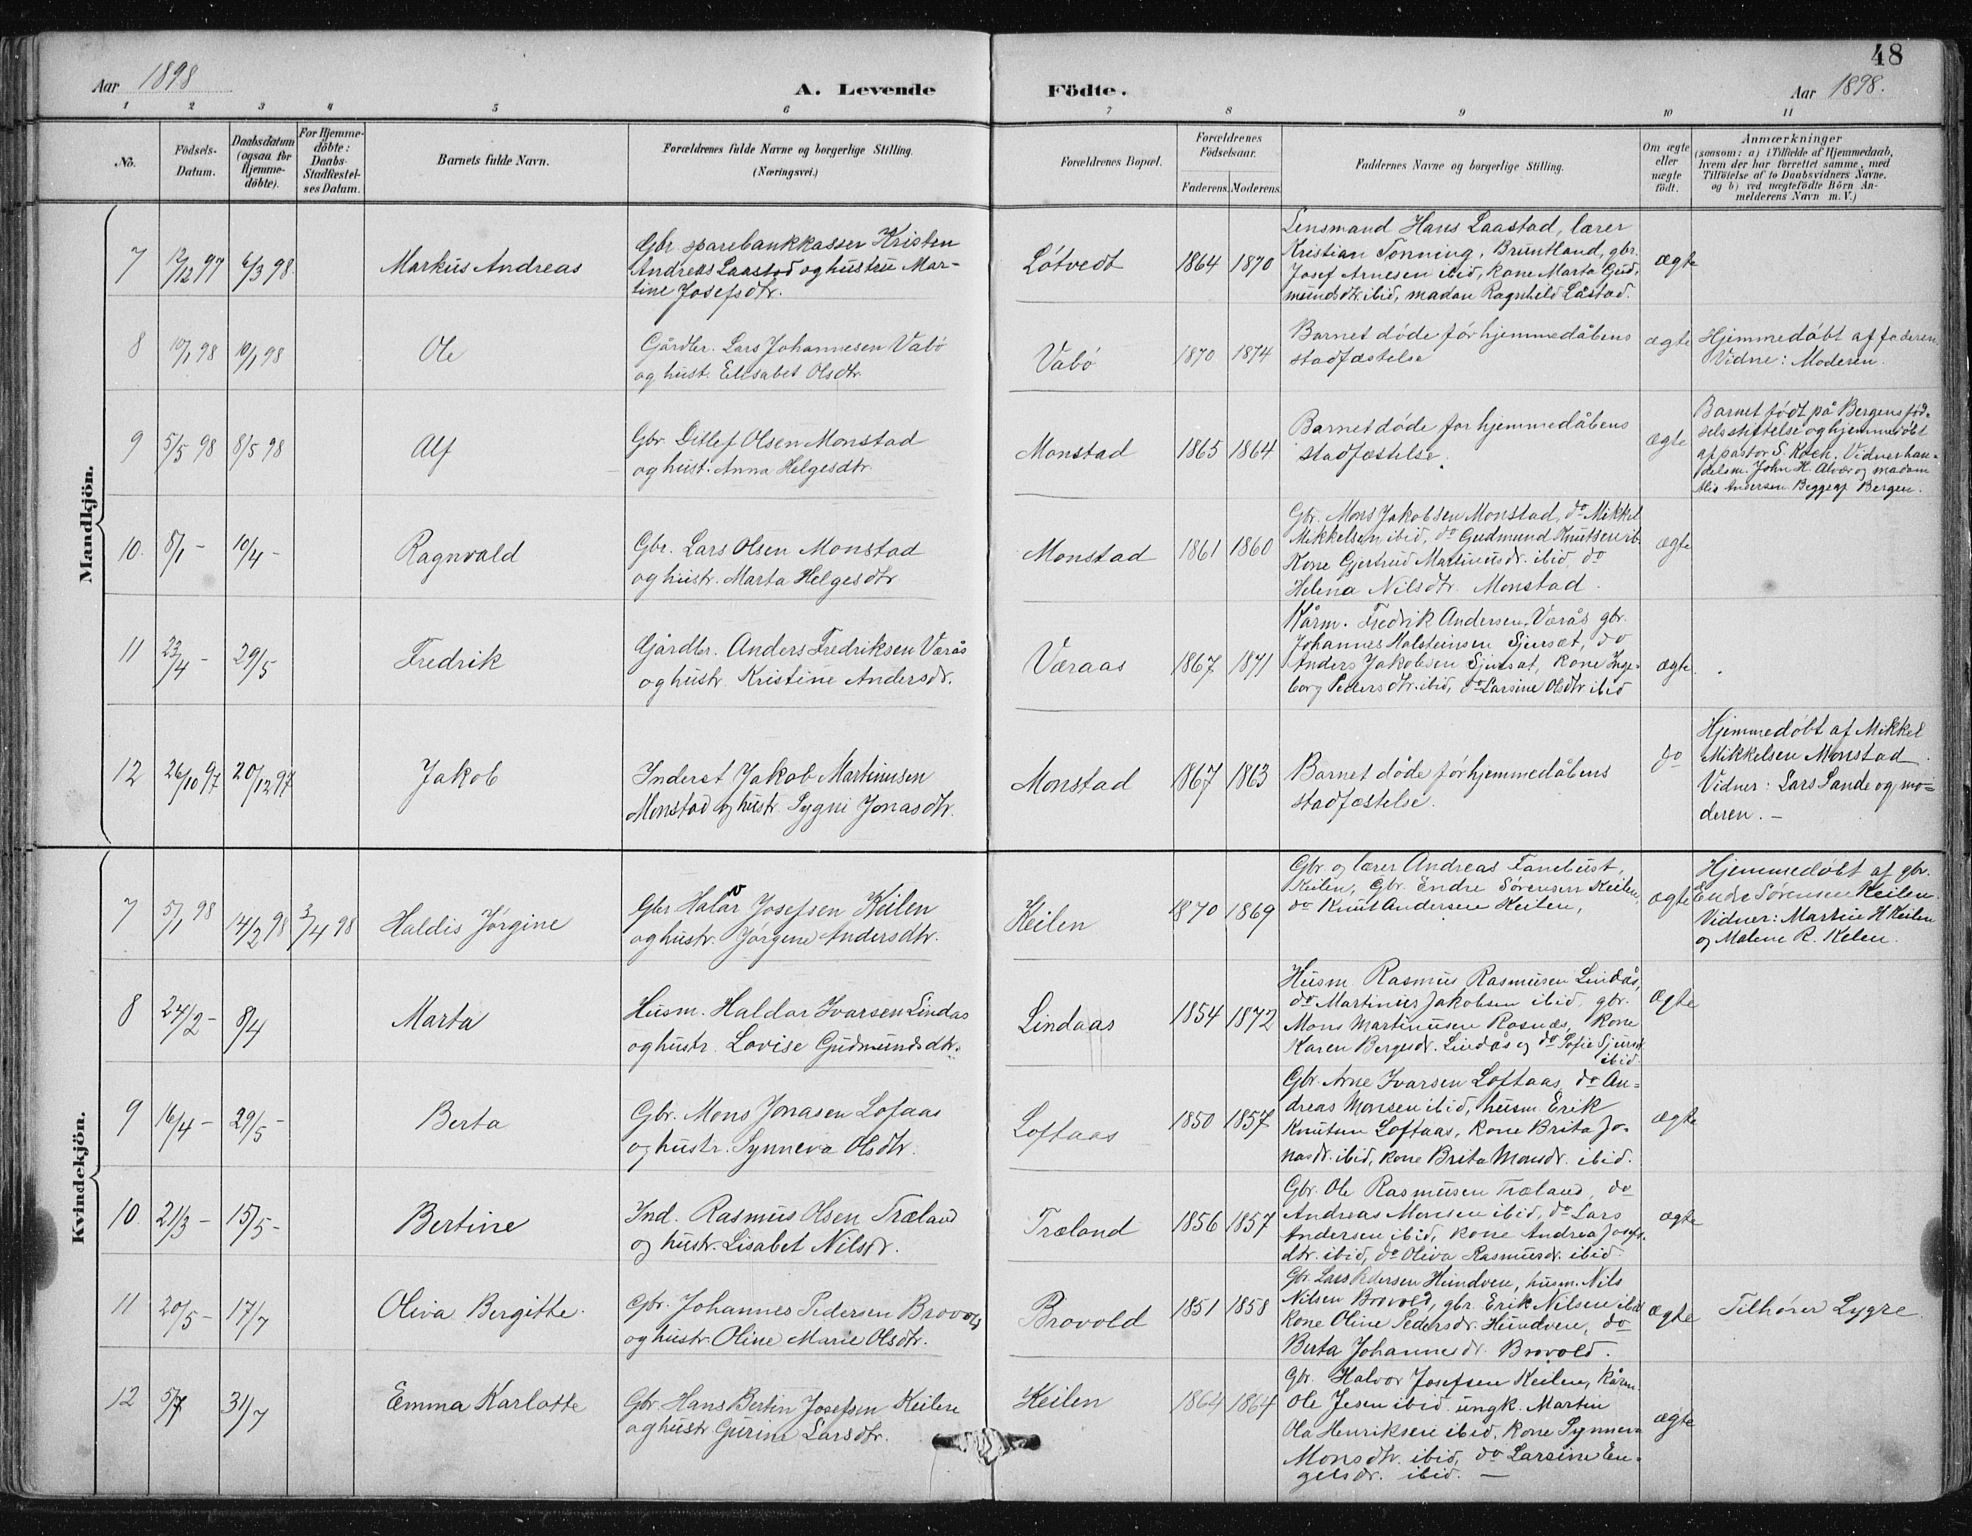 48
Aar 1898
A. Levende
Födte.
Aar 1898.
1 2 3 4 5 6 7 8 9 10 11
No.
Födsels-
Datum.
Daabsdatum
(ogsaa for
Hjemme-
döbte).
For Hjemme-
döbte:
Daabs-
Stadfæstel-
ses Datum.
Barnets fulde Navn.
Forældrenes fulde Navne og borgerlige Stilling.
(Næringsvei.)
Forældrenes Bopæl.
Forældrenes
Födselsaar.
Faderens. Moderens.
Faddernes Navne og borgerlige Stilling.
Om ægte
eller
uægte
födt.
Anmærkninger
(saasom: a) i Tilfælde af Hjemmedaab,
hvem der har forrettet samme, med
Tilföielse af to Daabsvidners Navne,
og b) ved uægtefödte Börn An-
melderens Navn m. V.)
Mandkjön.
7
12/12 97
6/3 98.
Markus Andreas
Gbr. sparebankkasser Kristen
Andreas Laastad og hustru Mar-
tine Josefsdtr.
Løtvedt
1864 1870
Lensmand Hans Laastad, lærer
Kristian Tonning, Bruntland, gbr.
Josef Arnesen ibid, kone Marta Gud
mundsdtr. ibid, madan Ragnhild Låstad.
ægte
8
10/1 98
10/1 98
Ole
Gårdbr. Lars Johannesen Vabø
og hust. Elisabet Olsdtr.
Vabø
1870 1874
Barnet døde før hjemmedåbens
stadfæstelse
ægte
Hjemmedøbt af faderen
Vidne: Moderen.
9
5/5 98
8/5 98
Alf
Gbr. Ditlef Olsen Monstad
og hust. Anna Helgesdtr.
Monstad
1865 1864
Barnet døde før hjemmedåbens
stadfæstelse.
ægte
Barnet født på Bergens fød-
selsstiftelse og hjemmedøbt
af pastor S. Koch. Vidner han-
delsm. John H. Alvær og madam
Andersen Begge af Bergen.
10.
8/1 -
10/4 -
Ragnvald
Gbr. Lars Olsen Monstad
og hustr. Marta Helgesdtr
Monstad
1861 1860
Gbr. Mons Jakobsen Monstad, do Mikkel
Mikkelsen ibid, do Gudmund Knutsen ib.
Kone Gjertrud Martinusdr. ibid, do
Helena Nilsdtr. Monstad.
ægte
11
23/4 -
29/5
Fredrik
Gårdbr. Anders Fredriksen Værås
og hustr. Kristine Andersdr.
Væraas
1867 1871
Kårm. Fredrik Andersen Værås gbr.
Johannes Holsteinsen Sjursæt, do
Anders Jakobsen Sjursæt, kone Inge-
borg Pedersdtr. ibid, do Larsine Olsdtr ibid
ægte.
12
26/10 97
20/12 97
Jakob
Inderst Jakob Martinusen
Monstad og hustr. Sygni Jonasdtr.
Monstad
1867 1863
Barnet døde før hjemmedåbens
stadfæstelse.
do
Hjemmedøbt af Mikkel
Mikkelsen Monstad.
Vidner: Lars Sande og mo-
deren. -
Kvindekjön.
7
5/1 98
14/2 98
3/4 98
Haldis Jørgine
Gbr Halvor Josefsen Keilen
og hustr. Jørgene Andersdtr.
Keilen
1870 1869
Gbr. og lærer Andreas Fanebust,
Keilen, Gbr. Endre Sørensen Keilen,
do Knut Andersen Keilen,
ægte
Hjemmedøbt af gbr.
Endre Sørensen Keilen.
Vidner: Martin H Keilen
og Malene R. Kelen.
8
24/2 -
8/4
Marta
Husm. Haldor Ivarsen Lindas
og hustr. Lovise Gudmundsdtr.
Lindaas
1854 1872
Husm Rasmus Rasmusen Lindås,
do Martinus Jakobsen ibid, gbr.
Mons Martinusen Rosnæs, Kone
Karen Bergesdr. Lindås og do Sofie Sjursdr
ibid.
ægte
9
16/4 -
29/5 -
Berta
Gbr. Mons Jonasen Loftaas
og hustr. Synneva Olsdtr.
Loftaas
1850 1857
Gbr. Arne Ivarsen Loftaas, do An-
dreas Monsen ibid, husm. Erik
Knutsen Loftaas, Kone Brita Jo-
nasdr. ibid, kone Brita Monsdr. ibid.
ægte
10.
21/3 -
15/5 -
Bertine
Ind. Rasmus Olsen Træland
og hustr. Lisabet Nilsdr.
Træland
1856 1857
Gbr. Ole Rasmusen Træland, do
Andreas Monsen ibid, do Lars
Andersen ibid, kone Andrea Josefs-
dtr. ibid, do Oliva Rasmusdr. ibid.
ægte
11
20/5 -
17/7
Oliva Bergitte.
Gbr. Johannes Pedersen Brovold
og hustr. Oline Marie Olsdtr.
Brovold
1851 1858
Gbr. Lars Pedersen Hundven, husm. Nils
Nilsen Brovold, gbr. Erik Nilsen ibid
Kone Oline Pedersdr. Hundven, do
Berta Johannesdr. Brovold.
ægte
Tilhører Lygre
12
5/7
31/7
Emma Karlotte
Gbr. Hans Bertin Josefsen Keilen
og hustr Gurine Larsdtr.
Keilen
1864 1864
Gbr. Halvor Josefsen Keilen, kårm.
Ole Jesen ibid. ungk. Martin
Ola Henriksen ibid, kone Synneva
Monsdtr. ibid, do Larsine En-
gelsdr. ibid. -
ægte